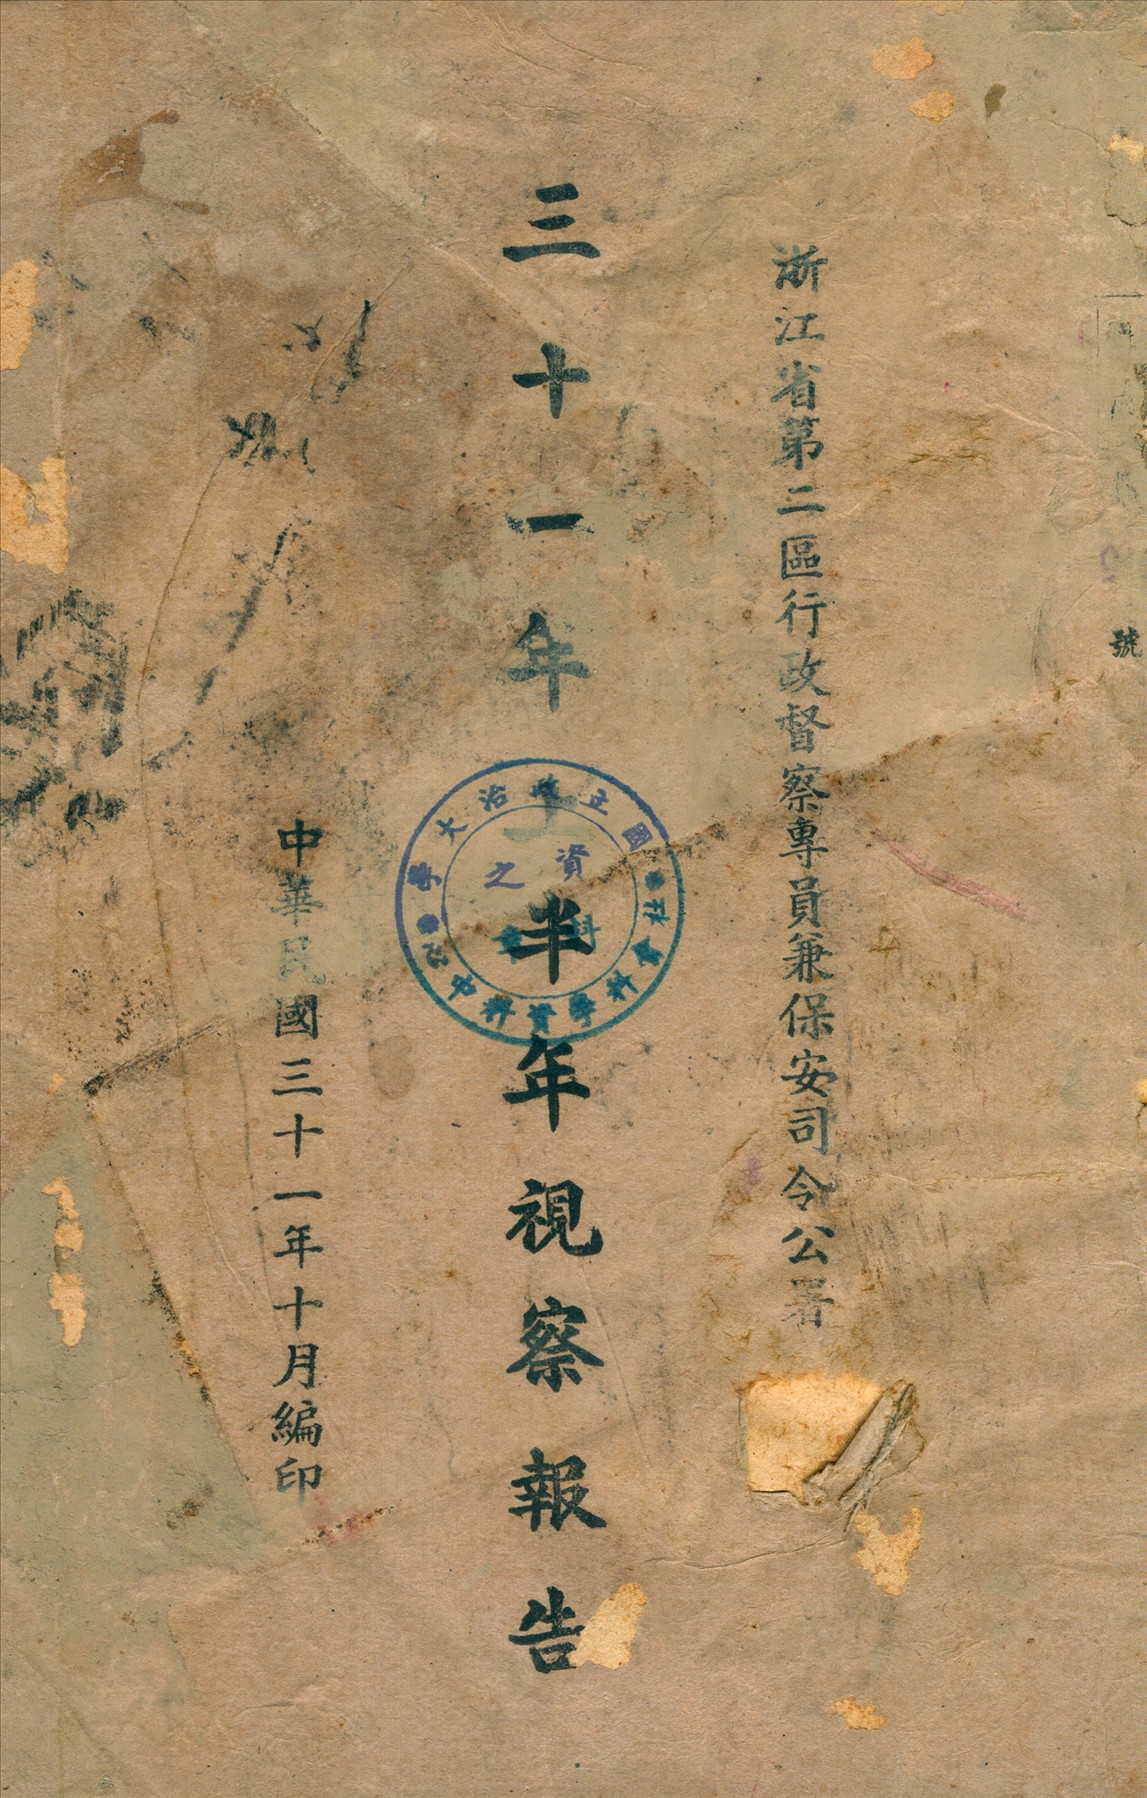 號
浙江省第二區行政督察專員兼保安司令公署
三十一年上半年視察報告
中華民國三十一年十月編印
國立政治大學
社會科學資料中心
資料之章